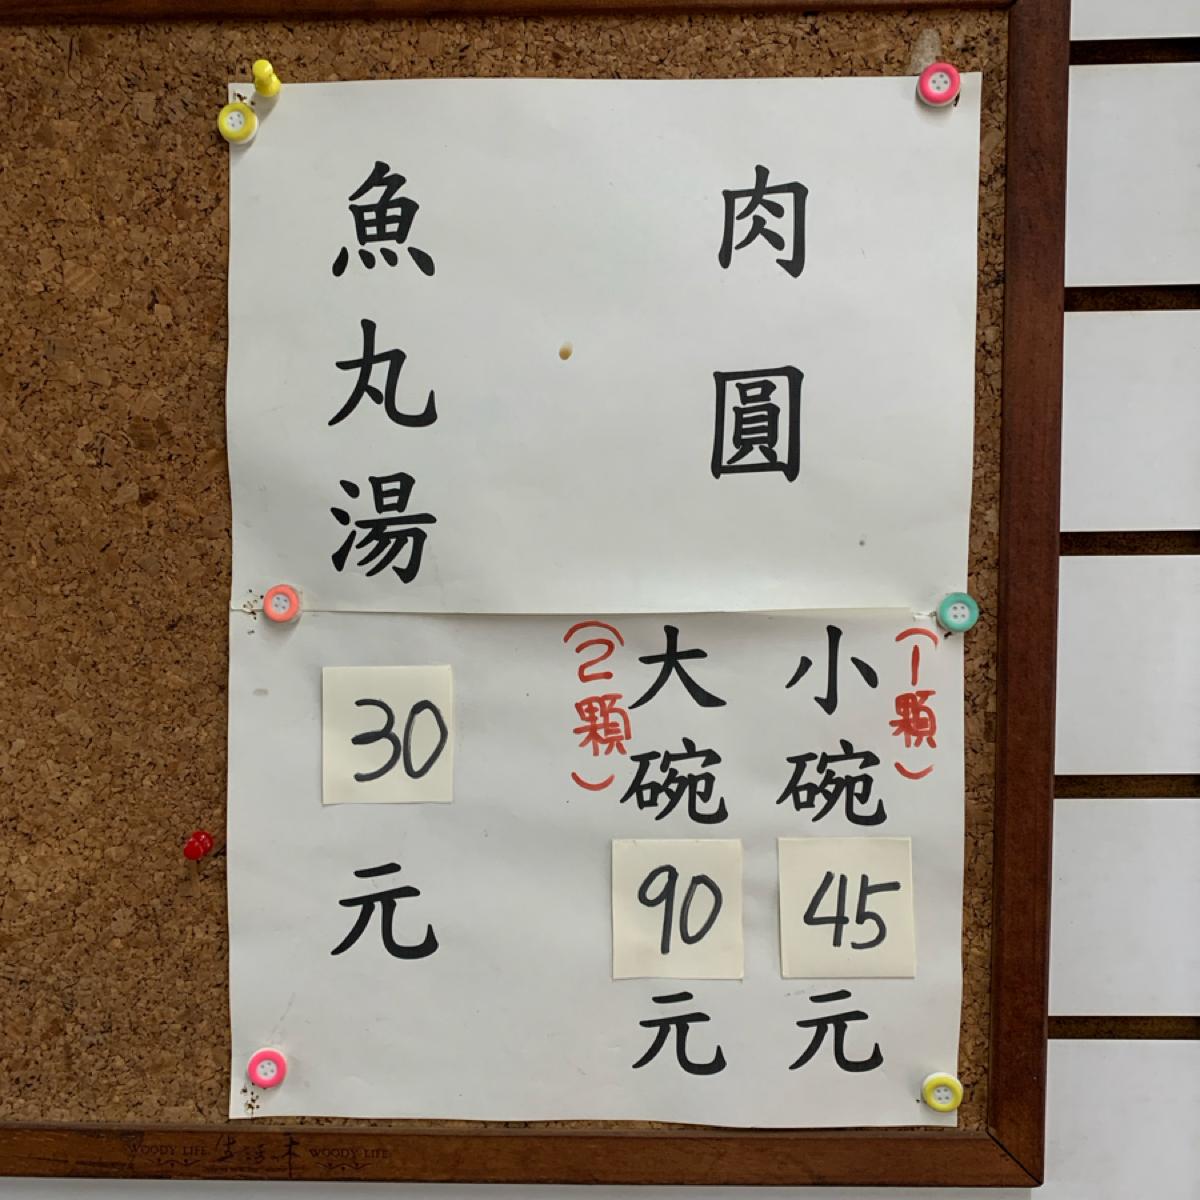 肉圓
(1顆)
小碗45元
大碗90元
(2顆)
魚丸湯
30元
WOODY LIFE 生活木 WOODY LIFE